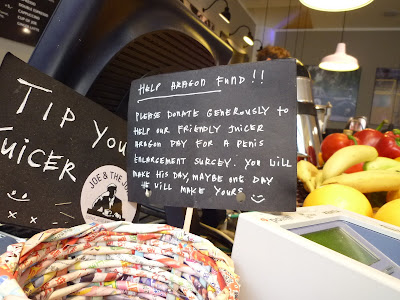 HELP ARAGON FUND!!
PLEASE DONATE GENEROUSLY TO
HELP OUR FRIENDLY JUICER
ARAGON PAY FOR A PENIS
ENLARGEMENT SURGEY. YOU WILL
MAKE HIS DAY, MAYBE ONE DAY
HE WILL MAKE YOURS
TIP YOU
JUICER
JOE & THE J